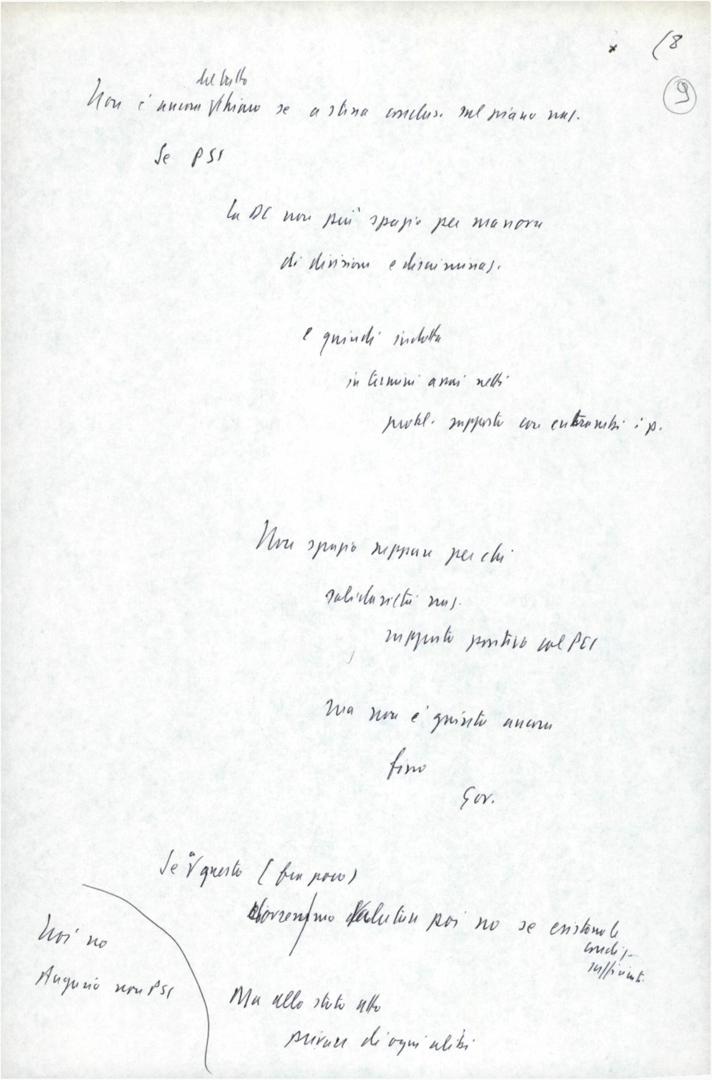 (8
9
del tutto
Non è ancora chiaro se a stina conclus. sul piano naz.
Se PSI
la DC non più spazio per manovra
di divisione e discriminaz.
e quindi indotta
in termini assai netti
probl. rapporto con entrambi i p.
Non spazio neppure per chi
solidarietà naz.
rapporto positivo col PCI
ma non è giunto ancora
fino
Gov.
Se a questo (fra poco)
dovremmo valutare poi noi se esistono le
condiz.
sufficienti.
Noi no
Augurio non PSI
Ma allo stato atto
privare di ogni alibi